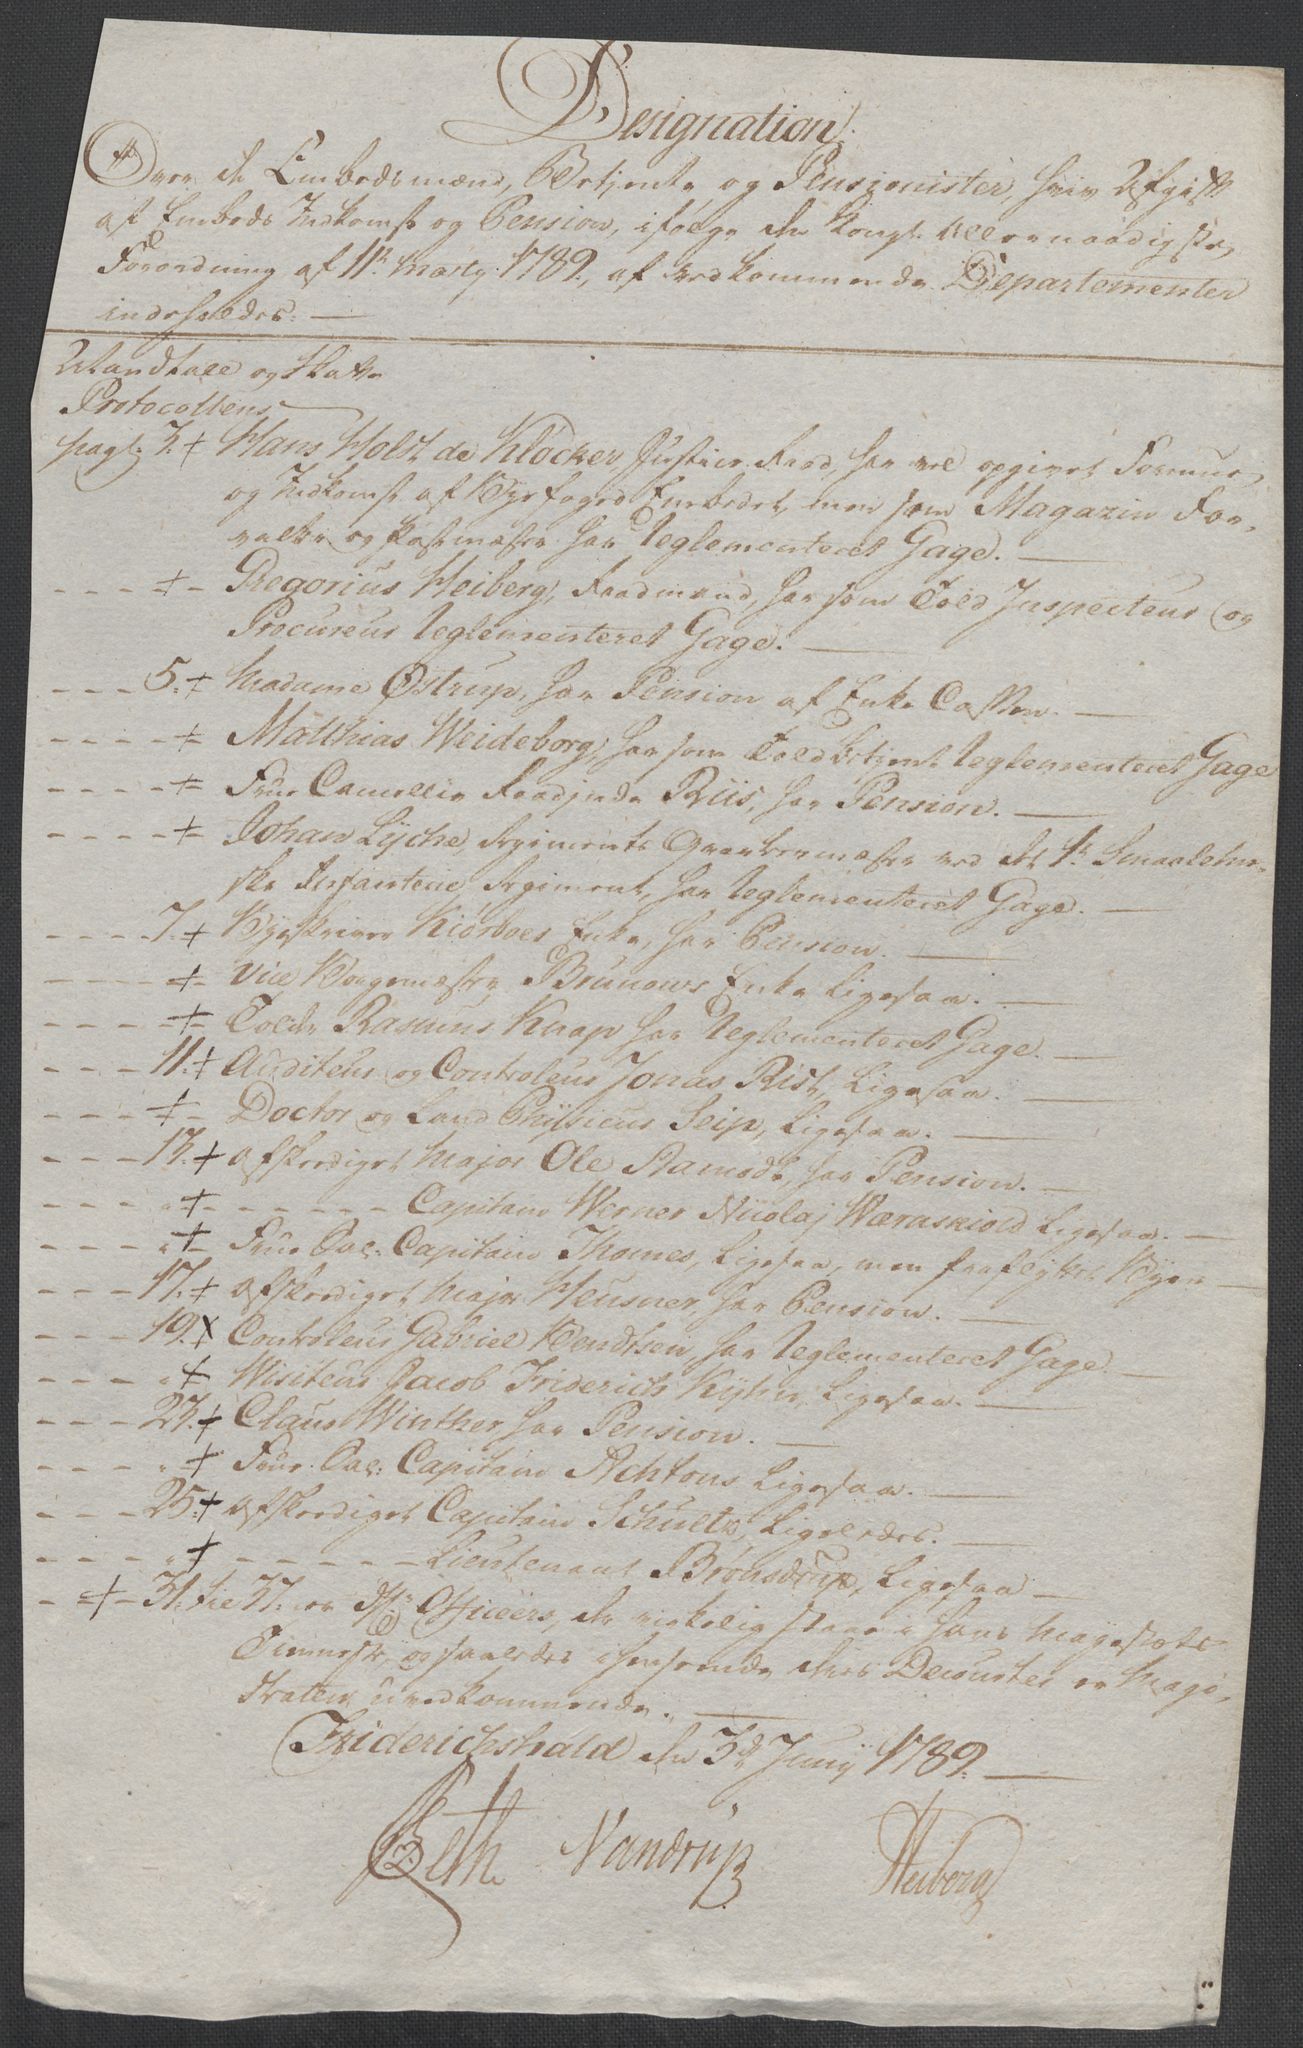 Designation
Over de Embedsmænd, Betjente og Pensionister, hvis Afgift
af Embeds Indkomst og Pension, ifølge den Kongl. Allernaadigste
Forordning af 11te Marty 1789, af vedkommende Departementer
indeholdes. —
Mandtall og Skatte
Protocollens
pag. 3. + Hans Holst de Klöcker, Justice Raad, har vel opgivet Formue
og Indkomst af Byefoged Embedet, men som Magazin For-
valter og Postmester har Reglementeret Gage. —
- - - - + - Gregorius Heiberg, Raadmand, har som Told Inspecteur og
Procureur Reglementeret Gage. —
- - - 5. + Madame Østrup, har Pension af Enke Cassen. —
- - - - + Matthias Weideborg, har som Toldbetjent Reglementeret Gage
- - - - + Frue Cancellie Raadinde Riis, har Pension. —
- - - - + Johan Lyche, Regiments Qvarteermester ved det 1te Smaalehn-
ske Infanterie Regiment, har Reglementeret Gage. —
- - - 7. + Byeskriver Kiörboes Enke, har Pension. —
- - - - + Vice Borgemester Brunows Enke Ligesaa. —
- - - - + - Tolder Rasmus Knap har Reglementeret Gage. —
- - - 11. + Auditeur og Controleur Jonas Rist, Ligesaa. —
- - - - + - Doctor og Land Physicus Seip, Ligesaa. —
- - - 13. + afskediget Major Ole Aamodt, har Pension. —
- - - - " + - - - - - - - Capitain Werner Nicolaj Wæraskiold Ligesaa. —
- - - - " + - Frue Ob: Capitain Thomes, Ligesaa, men fraflyttet Byen —
- - - 17. + afskediget Major Heusner, har Pension. —
- - - 19. + Controleur Gabriel Bendtsen, har Reglementeret Gage. —
- - - - " + Visiteur Jacob Friderich Kyhn, Ligesaa. —
- - - 23. + Claus Winther har Pension. —
- - - - " + Frue Ob: Capitain Achtons Ligesaa. —
- - - 25. + afskediget Capitain Schultz, Ligeledes. —
- - - - " + - - - - - - Lieutenant Brönsdrup, Ligesaa —
- + - 31. til 37. er Officiers, der virkelig staae i Hans Mayestets
Tienneste, og saaledes henseende deres Decourter er Magi-
straten uvedkommende. —
Friderichshald den 3de Junij 1789. —
Beth Vandrup Heiberg